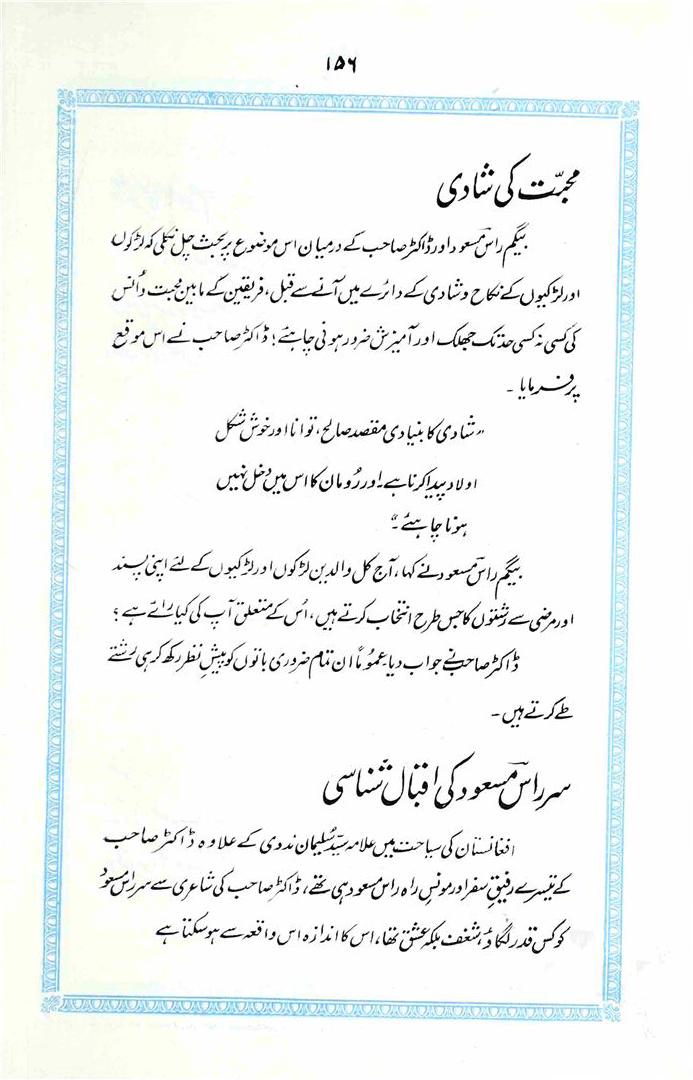 ۱۵۶
محبّت کی شادی
بیگم راس مسعود اور ڈاکٹر صاحب کے درمیان اس موضوع پر بحث چل نکلی کہ لڑکوں
اور لڑکیوں کے نکاح و شادی کے دائرے میں آنے سے قبل، فریقین کے مابین محبت و اُنس
کی کسی نہ کسی حد تک جھلک اور آمیزش ضرور ہونی چاہئے؛ ڈاکٹر صاحب نے اس موقع
پر فرمایا ۔
"شادی کا بنیادی مقصد صالح، توانا اور خوش شکل
اولاد پیدا کرنا ہے۔ اور رُومان کا اس میں دخل نہیں
ہونا چاہئے ۔"
بیگم راس مسعود نے کہا، آج کل والدین لڑکوں اور لڑکیوں کے لئے اپنی پسند
اور مرضی سے رشتوں کا جس طرح انتخاب کرتے ہیں، اُس کے متعلق آپ کی کیا رائے ہے؟
ڈاکٹر صاحب نے جواب دیا عموماً ان تمام ضروری باتوں کو پیشِ نظر رکھ کر ہی رشتے
طے کرتے ہیں ۔
سر راس مسعود کی اقبال شناسی
افغانستان کی سیاحت میں علامہ سیّد سُلیمان ندوی کے علاوہ ڈاکٹر صاحب
کے تیسرے رفیقِ سفر اور مونسِ راہ راس مسعود ہی تھے، ڈاکٹر صاحب کی شاعری سے سر راس مسعود
کو کس قدر لگاؤ، شغف بلکہ عشق تھا، اس کا اندازہ اس واقعہ سے ہو سکتا ہے